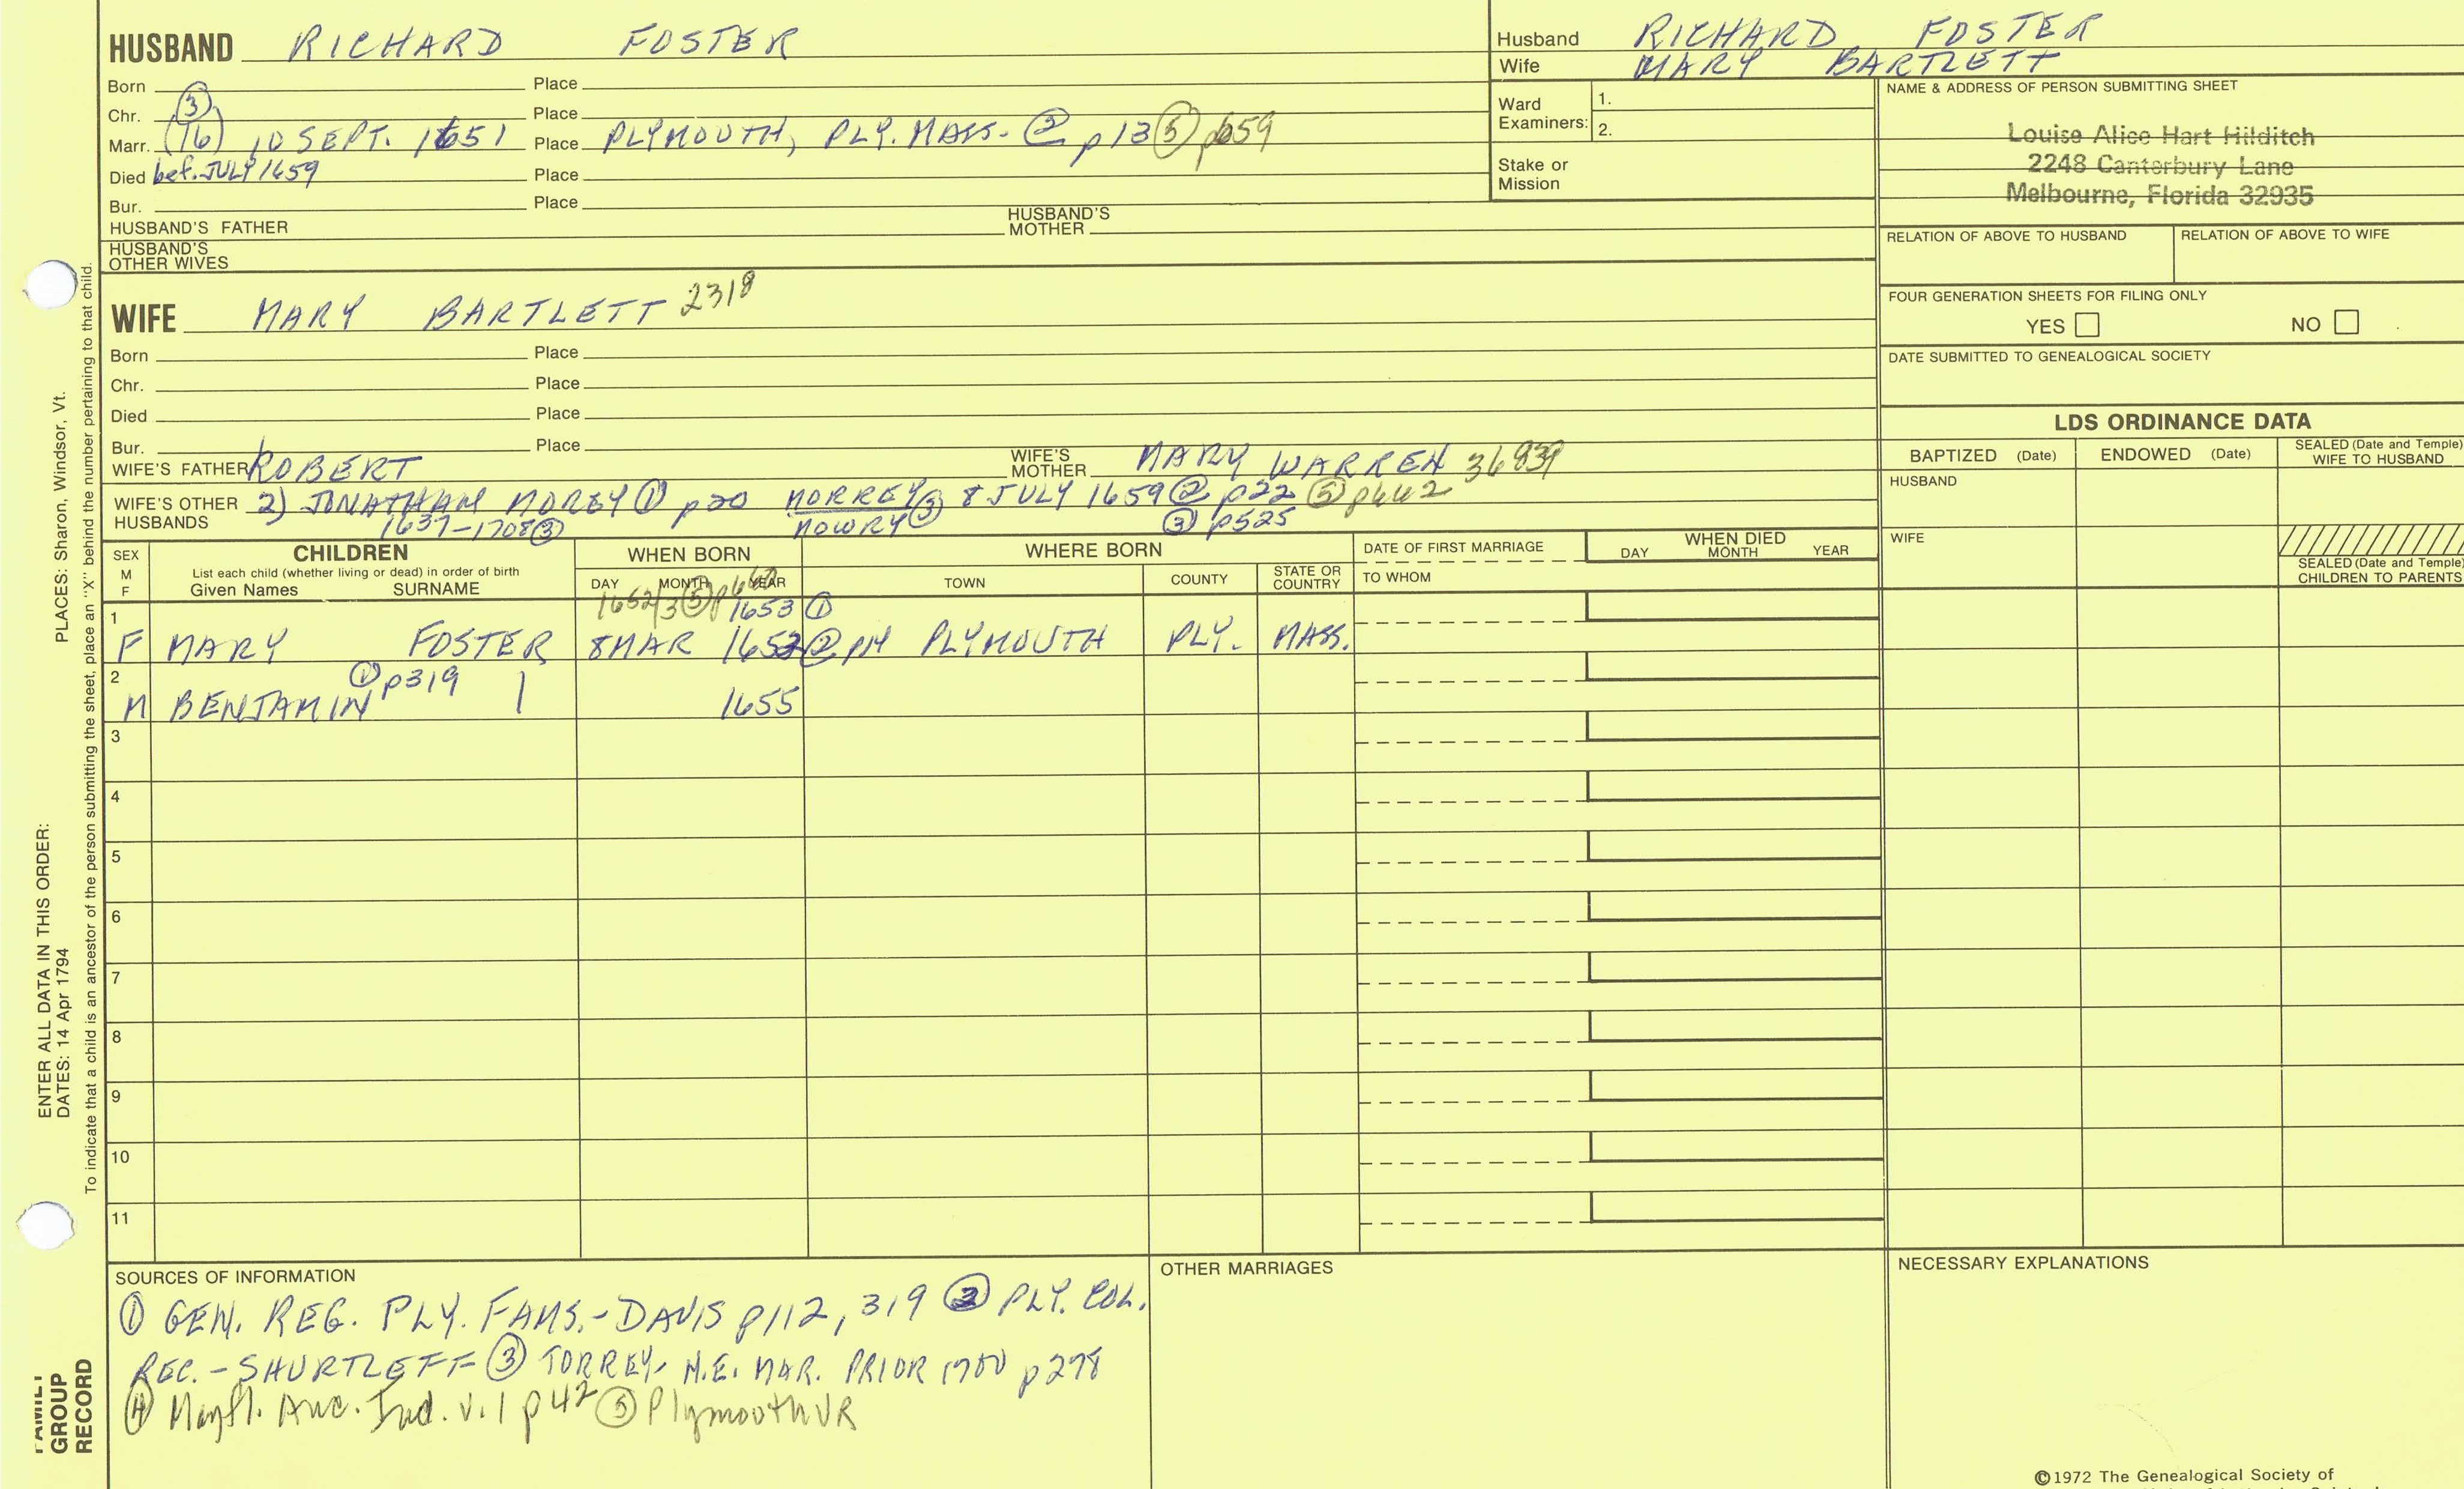 HUSBAND RICHARD FOSTER
Born Place
Chr. ③ Place
Marr. (16) 10 SEPT. 1651 Place PLYMOUTH, PLY. MASS. ② p13 ⑤ p659
Died bef. JULY 1659 Place
Bur. Place
HUSBAND'S FATHER HUSBAND'S MOTHER
HUSBAND'S OTHER WIVES
Husband RICHARD FOSTER
Wife MARY BARTLETT
Ward Examiners: 1.
2.
Stake or Mission
NAME & ADDRESS OF PERSON SUBMITTING SHEET
Louise Alice Hart Hilditch
2248 Canterbury Lane
Melbourne, Florida 32935
RELATION OF ABOVE TO HUSBAND RELATION OF ABOVE TO WIFE
FOUR GENERATION SHEETS FOR FILING ONLY
YES NO
DATE SUBMITTED TO GENEALOGICAL SOCIETY
WIFE MARY BARTLETT 2318
Born Place
Chr. Place
Died Place
Bur. Place
WIFE'S FATHER ROBERT WIFE'S MOTHER MARY WARREN
WIFE'S OTHER HUSBANDS 2) JONATHAN MOREY ① p20 MORREY ③ 8 JULY 1659 ② p22 ⑤ p662
1637-1708 ③ MOWRY ③ p525
LDS ORDINANCE DATA
BAPTIZED (Date) ENDOWED (Date) SEALED (Date and Temple) WIFE TO HUSBAND
HUSBAND
WIFE
SEALED (Date and Temple) CHILDREN TO PARENTS
SEX M F CHILDREN
List each child (whether living or dead) in order of birth
Given Names SURNAME
WHEN BORN
DAY MONTH YEAR
WHERE BORN
TOWN COUNTY STATE OR COUNTRY
DATE OF FIRST MARRIAGE
TO WHOM
WHEN DIED
DAY MONTH YEAR
1652/3 ⑤ p660 1653 ①
1 F MARY FOSTER 8 MAR 1652 ② p14 PLYMOUTH PLY. MASS.
2 M BENJAMIN ① p319 | 1655
3
4
5
6
7
8
9
10
11
SOURCES OF INFORMATION
① GEN. REG. PLY. FAMS.-DAVIS p112, 319 ② PLY. COL.
REC.-SHURTLEFF ③ TORREY- N.E. MAR. PRIOR 1700 p278
④ Mayfl. Anc. Ind. v.1 p42 ⑤ Plymouth VR
OTHER MARRIAGES
NECESSARY EXPLANATIONS
©1972 The Genealogical Society of
ENTER ALL DATA IN THIS ORDER:
DATES: 14 Apr 1794
PLACES: Sharon, Windsor, Vt.
To indicate that a child is an ancestor of the person submitting the sheet, place an "X" behind the number pertaining to that child.
FAMILY
GROUP
RECORD